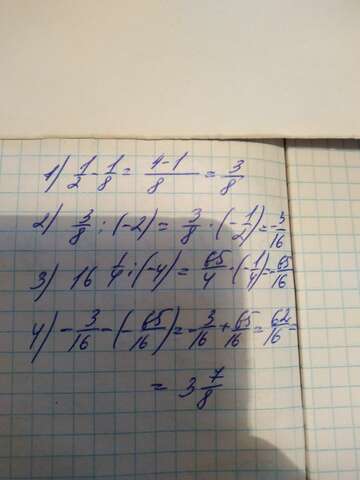 1) 1/2 - 1/8 = (4-1)/8 = 3/8
2) 3/8 : (-2) = 3/8 · (-1/2) = -3/16
3) 16 1/4 : (-4) = 65/4 · (-1/4) = -65/16
4) -3/16 - (-65/16) = -3/16 + 65/16 = 62/16 =
= 3 7/8